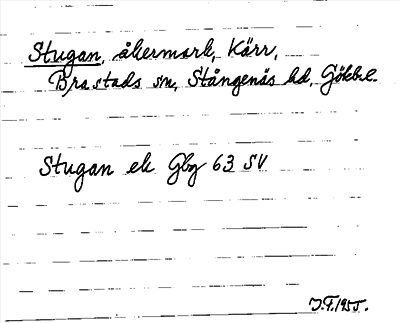 Stugan, åkermark, Kärr,
Brastads sn, Stångenäs hd, Gbgbl.
Stugan ek Gbg 63 SV
J.F. 1955.